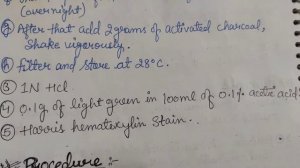 (overnight)
⑦ After that add 2grams of activated charcoal,
Shake vigorously.
⑧ filter and store at 28°C.
③ 1N Hcl
④ 0.1g of light green in 100ml of 0.1% acetic acid
⑤ Harris hematoxylin Stain.
Procedure :-